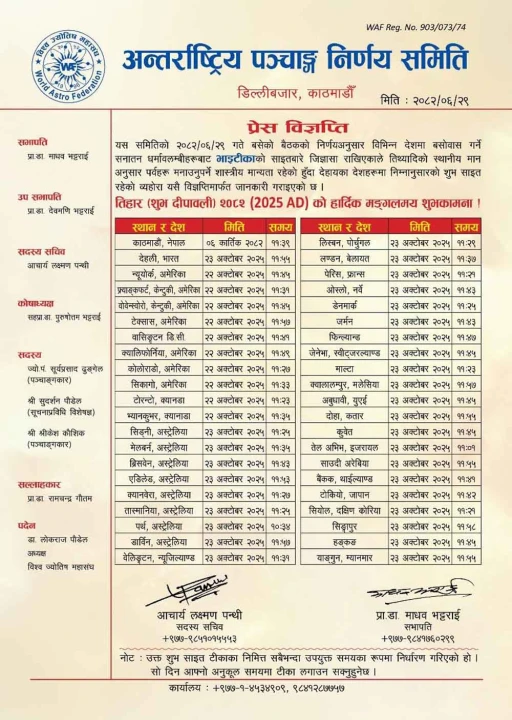 WAF Reg. No. 903/073/74
विश्व ज्योतिष महासंघ
WAF
World Astro Federation
अन्तर्राष्ट्रिय पञ्चाङ्ग निर्णय समिति
डिल्लीबजार, काठमाडौँ
मिति : २०८२/०६/२९
प्रेस विज्ञप्ति
यस समितिको २०८२/०६/२९ गते बसेको बैठकको निर्णयअनुसार विभिन्न देशमा बसोवास गर्ने
सनातन धर्मावलम्बीहरूबाट भाइटीकाको साइतबारे जिज्ञासा राखिएकाले तिथ्यादिको स्थानीय मान
अनुसार पर्वहरू मनाउनुपर्ने शास्त्रीय मान्यता रहेको हुँदा देहायका देशहरूमा निम्नानुसारको शुभ साइत
रहेको व्यहोरा यसै विज्ञप्तिमार्फत जानकारी गराइएको छ ।
तिहार (शुभ दीपावली) २०८२ (2025 AD) को हार्दिक मङ्गलमय शुभकामना !
सभापति
प्रा.डा. माधव भट्टराई
उप सभापति
प्रा.डा. देवमणि भट्टराई
सदस्य सचिव
आचार्य लक्ष्मण पन्थी
कोषाध्यक्ष
सहप्रा.डा. पुरुषोतम भट्टराई
सदस्य
ज्यो.पं. सूर्यप्रसाद ढुङ्गेल
(पञ्चाङ्गकार)
श्री सुदर्शन पौडेल
(सूचनाप्रविधि विशेषज्ञ)
श्री श्रीकेश कौशिक
(पञ्चाङ्गकार)
सल्लाहकार
प्रा.डा. रामचन्द्र गौतम
पदेन
डा. लोकराज पौडेल
अध्यक्ष
विश्व ज्योतिष महासंघ
स्थान र देश मिति समय
काठमाडौं, नेपाल ०६ कार्तिक २०८२ ११:३९
देहली, भारत २३ अक्टोबर २०२५ ११:५५
न्यूयोर्क, अमेरिका २२ अक्टोबर २०२५ ११:४५
फ्र्याङ्कफर्ट, केन्टुकी, अमेरिका २२ अक्टोबर २०२५ ११:३१
वोवेन्ग्वोरो, केन्टुकी, अमेरिका २२ अक्टोबर २०२५ ११:४५
टेक्सास, अमेरिका २२ अक्टोबर २०२५ ११:५७
वासिङ्टन डि.सी. २२ अक्टोबर २०२५ ११:४१
क्यालिफोर्निया, अमेरिका २२ अक्टोबर २०२५ ११:४९
कोलोराडो, अमेरिका २२ अक्टोबर २०२५ ११:२७
सिकागो, अमेरिका २२ अक्टोबर २०२५ ११:३३
टोरन्टो, क्यानडा २२ अक्टोबर २०२५ ११:२३
भ्यानकुभर, क्यानाडा २२ अक्टोबर २०२५ ११:३५
सिड्नी, अस्ट्रेलिया २३ अक्टोबर २०२५ ११:२५
मेलबर्न, अस्ट्रेलिया २३ अक्टोबर २०२५ ११:३५
ब्रिसवेन, अस्ट्रेलिया २३ अक्टोबर २०२५ ११:४३
एडिलेड, अस्ट्रेलिया २३ अक्टोबर २०२५ ११:५३
क्यानवेरा, अस्ट्रेलिया २३ अक्टोबर २०२५ ११:२७
तास्मानिया, अस्ट्रेलिया २३ अक्टोबर २०२५ ११:२५
पर्थ, अस्ट्रेलिया २३ अक्टोबर २०२५ १०:३४
डार्विन, अस्ट्रेलिया २३ अक्टोबर २०२५ ११:५७
वेलिङ्टन, न्यूजिल्याण्ड २३ अक्टोबर २०२५ ११:३१
स्थान र देश मिति समय
लिस्बन, पोर्चुगल २३ अक्टोबर २०२५ ११:२९
लण्डन, बेलायत २३ अक्टोबर २०२५ ११:३७
पेरिस, फ्रान्स २३ अक्टोबर २०२५ ११:२१
ओस्लो, नर्वे २३ अक्टोबर २०२५ ११:४३
डेनमार्क २३ अक्टोबर २०२५ ११:२५
जर्मन २३ अक्टोबर २०२५ ११:४३
फिन्ल्याण्ड २३ अक्टोबर २०२५ ११:४७
जेनेभा, स्वीट्जरल्याण्ड २३ अक्टोबर २०२५ ११:४५
माल्टा २३ अक्टोबर २०२५ ११:२३
क्वालालम्पुर, मलेसिया २३ अक्टोबर २०२५ ११:५७
अबुधावी, युएई २३ अक्टोबर २०२५ ११:४५
दोहा, कतार २३ अक्टोबर २०२५ ११:५५
कुवेत २३ अक्टोबर २०२५ ११:४५
तेल अभिभ, इजरायल २३ अक्टोबर २०२५ ११:०१
साउदी अरेबिया २३ अक्टोबर २०२५ ११:५५
बैंकक, थाईल्याण्ड २३ अक्टोबर २०२५ ११:४१
टोकियो, जापान २३ अक्टोबर २०२५ ११:४२
सियोल, दक्षिण कोरिया २३ अक्टोबर २०२५ ११:२१
सिङ्गापुर २३ अक्टोबर २०२५ ११:५८
हङ्कङ २३ अक्टोबर २०२५ ११:४५
याङ्गुन, म्यानमार २३ अक्टोबर २०२५ ११:५५
आचार्य लक्ष्मण पन्थी
सदस्य सचिव
+९७७-९८५१०१५५५३
प्रा.डा. माधव भट्टराई
सभापति
+९७७-९८४१७६०२९९
नोट : उक्त शुभ साइत टीकाका निमित्त सबैभन्दा उपयुक्त समयका रूपमा निर्धारण गरिएको हो ।
सो दिन आफ्नो अनुकूल समयमा टीका लगाउन सक्नुहुनेछ ।
कार्यालय : +९७७-१-४५३४९०९, ९८४१२८७७५७